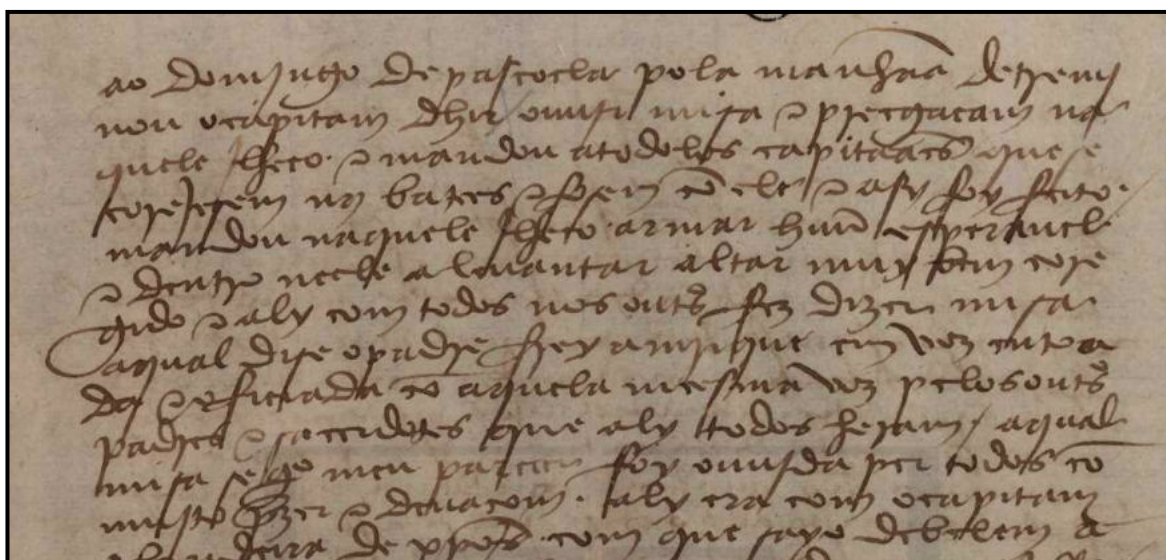 ao domjngo de pascoela pola manhaã detremj
nou ocapitam dhir ouuir misa e preegaçam na
quele jlheeo. e mandou atodolos capitaães que se
corejesem nos batees e fosem cõ ele e asy foy feito.
mandou naquele jlheeo armar huũ esperauel
e dentro neele aleuantar altar muy bem core
gido e aly com todos nos outros fez dizer misa
aqual dise opadre frey amrique em voz entoa
da e oficiada cõ aquela meesma voz pelos outros
padres e saçerdotes que aly todos heram / aqual
misa seg.º meu pareçer foy ouujda per todos cõ
mujto prazer e deuaçom. aly era com ocapitam
abandeira de xpos com que sayo debelem a